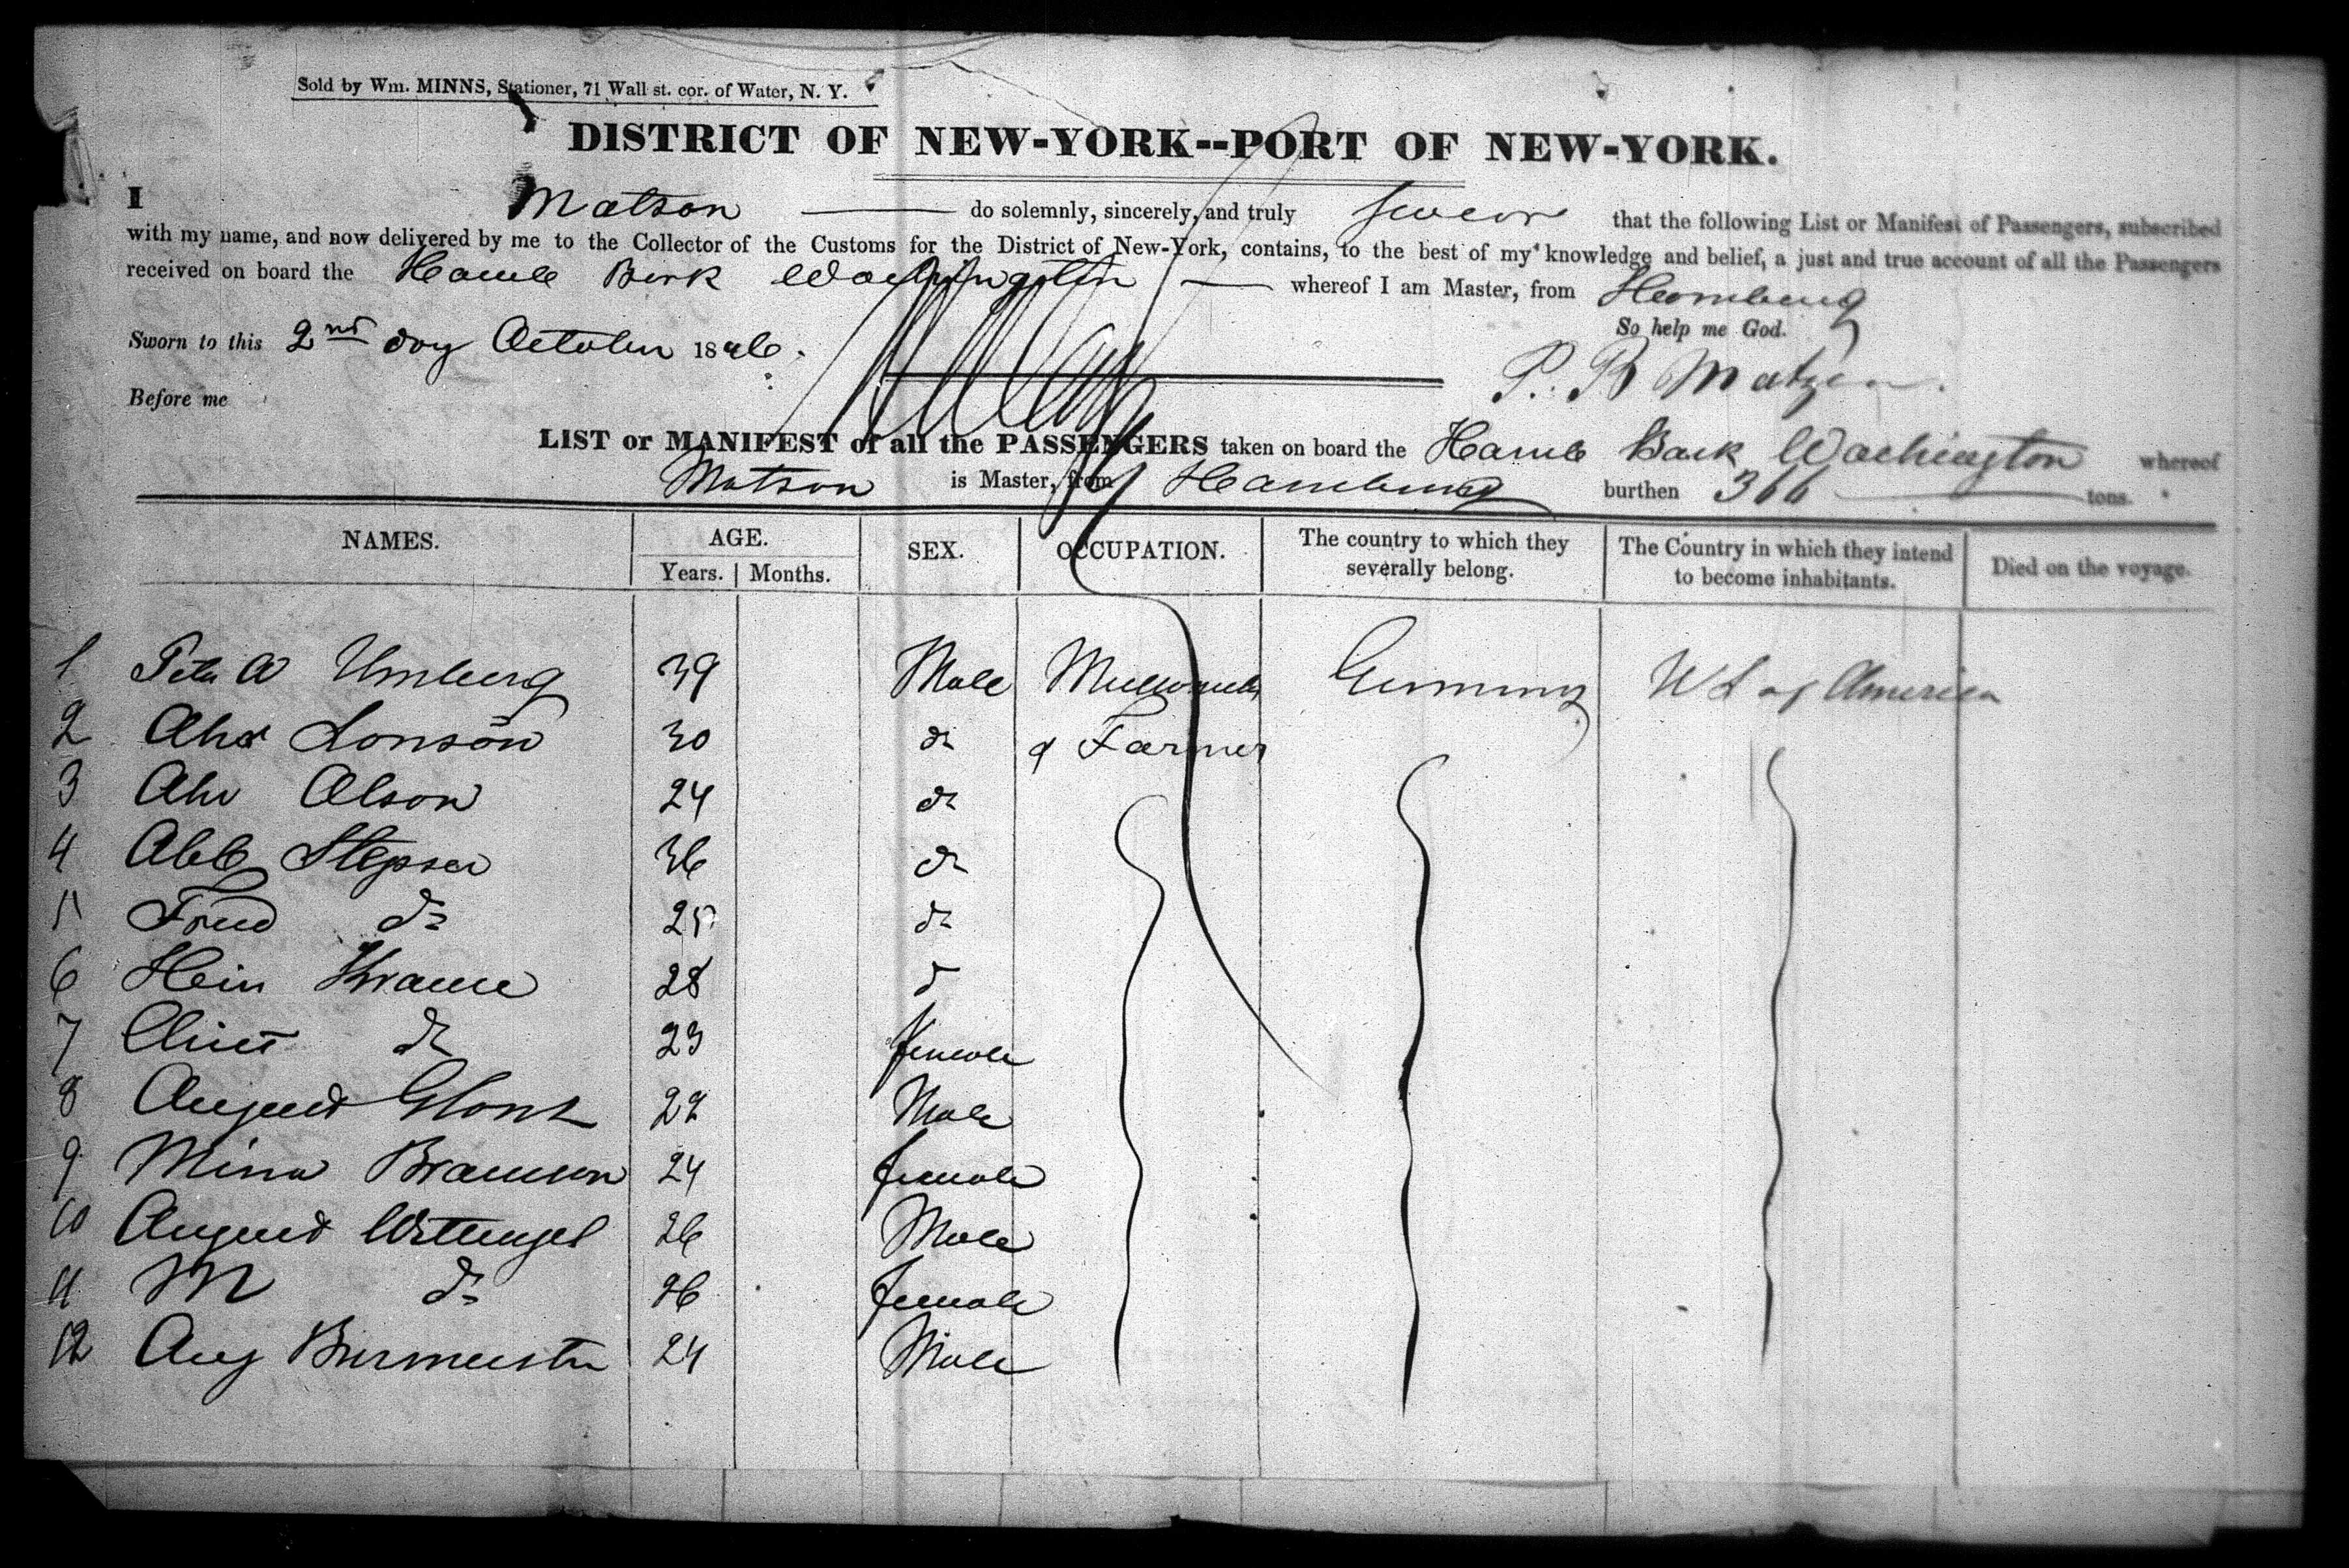 Sold by Wm. MINNS, Stationer, 71 Wall st. cor. of Water, N. Y.
DISTRICT OF NEW-YORK--PORT OF NEW-YORK.
I Matson do solemnly, sincerely, and truly swear that the following List or Manifest of Passengers, subscribed
with my name, and now delivered by me to the Collector of the Customs for the District of New-York, contains, to the best of my knowledge and belief, a just and true account of all the Passengers
received on board the Hamb Bark Washington whereof I am Master, from Hamburg
So help me God.
Sworn to this 2nd day October 1846.
P. B Matzen.
Before me
LIST or MANIFEST of all the PASSENGERS taken on board the Hamb Bark Washington whereof
Matson is Master, from Hamburg burthen 366 tons.
NAMES. AGE. SEX. OCCUPATION. The country to which they severally belong. The Country in which they intend to become inhabitants. Died on the voyage.
Years. Months.
1 Umberg 39 Male Germany of America
2 Lonson 30 do & Farmer
3 Olson 24 do
4 Stepser 36 do
5 do 25 do
6 Hein Krause 28 do
7 do 23 female
8 August 22 Male
9 Mina 24 female
10 August Wittengel 26 Male
11 M do 26 female
12 Aug Burmeister 24 Male